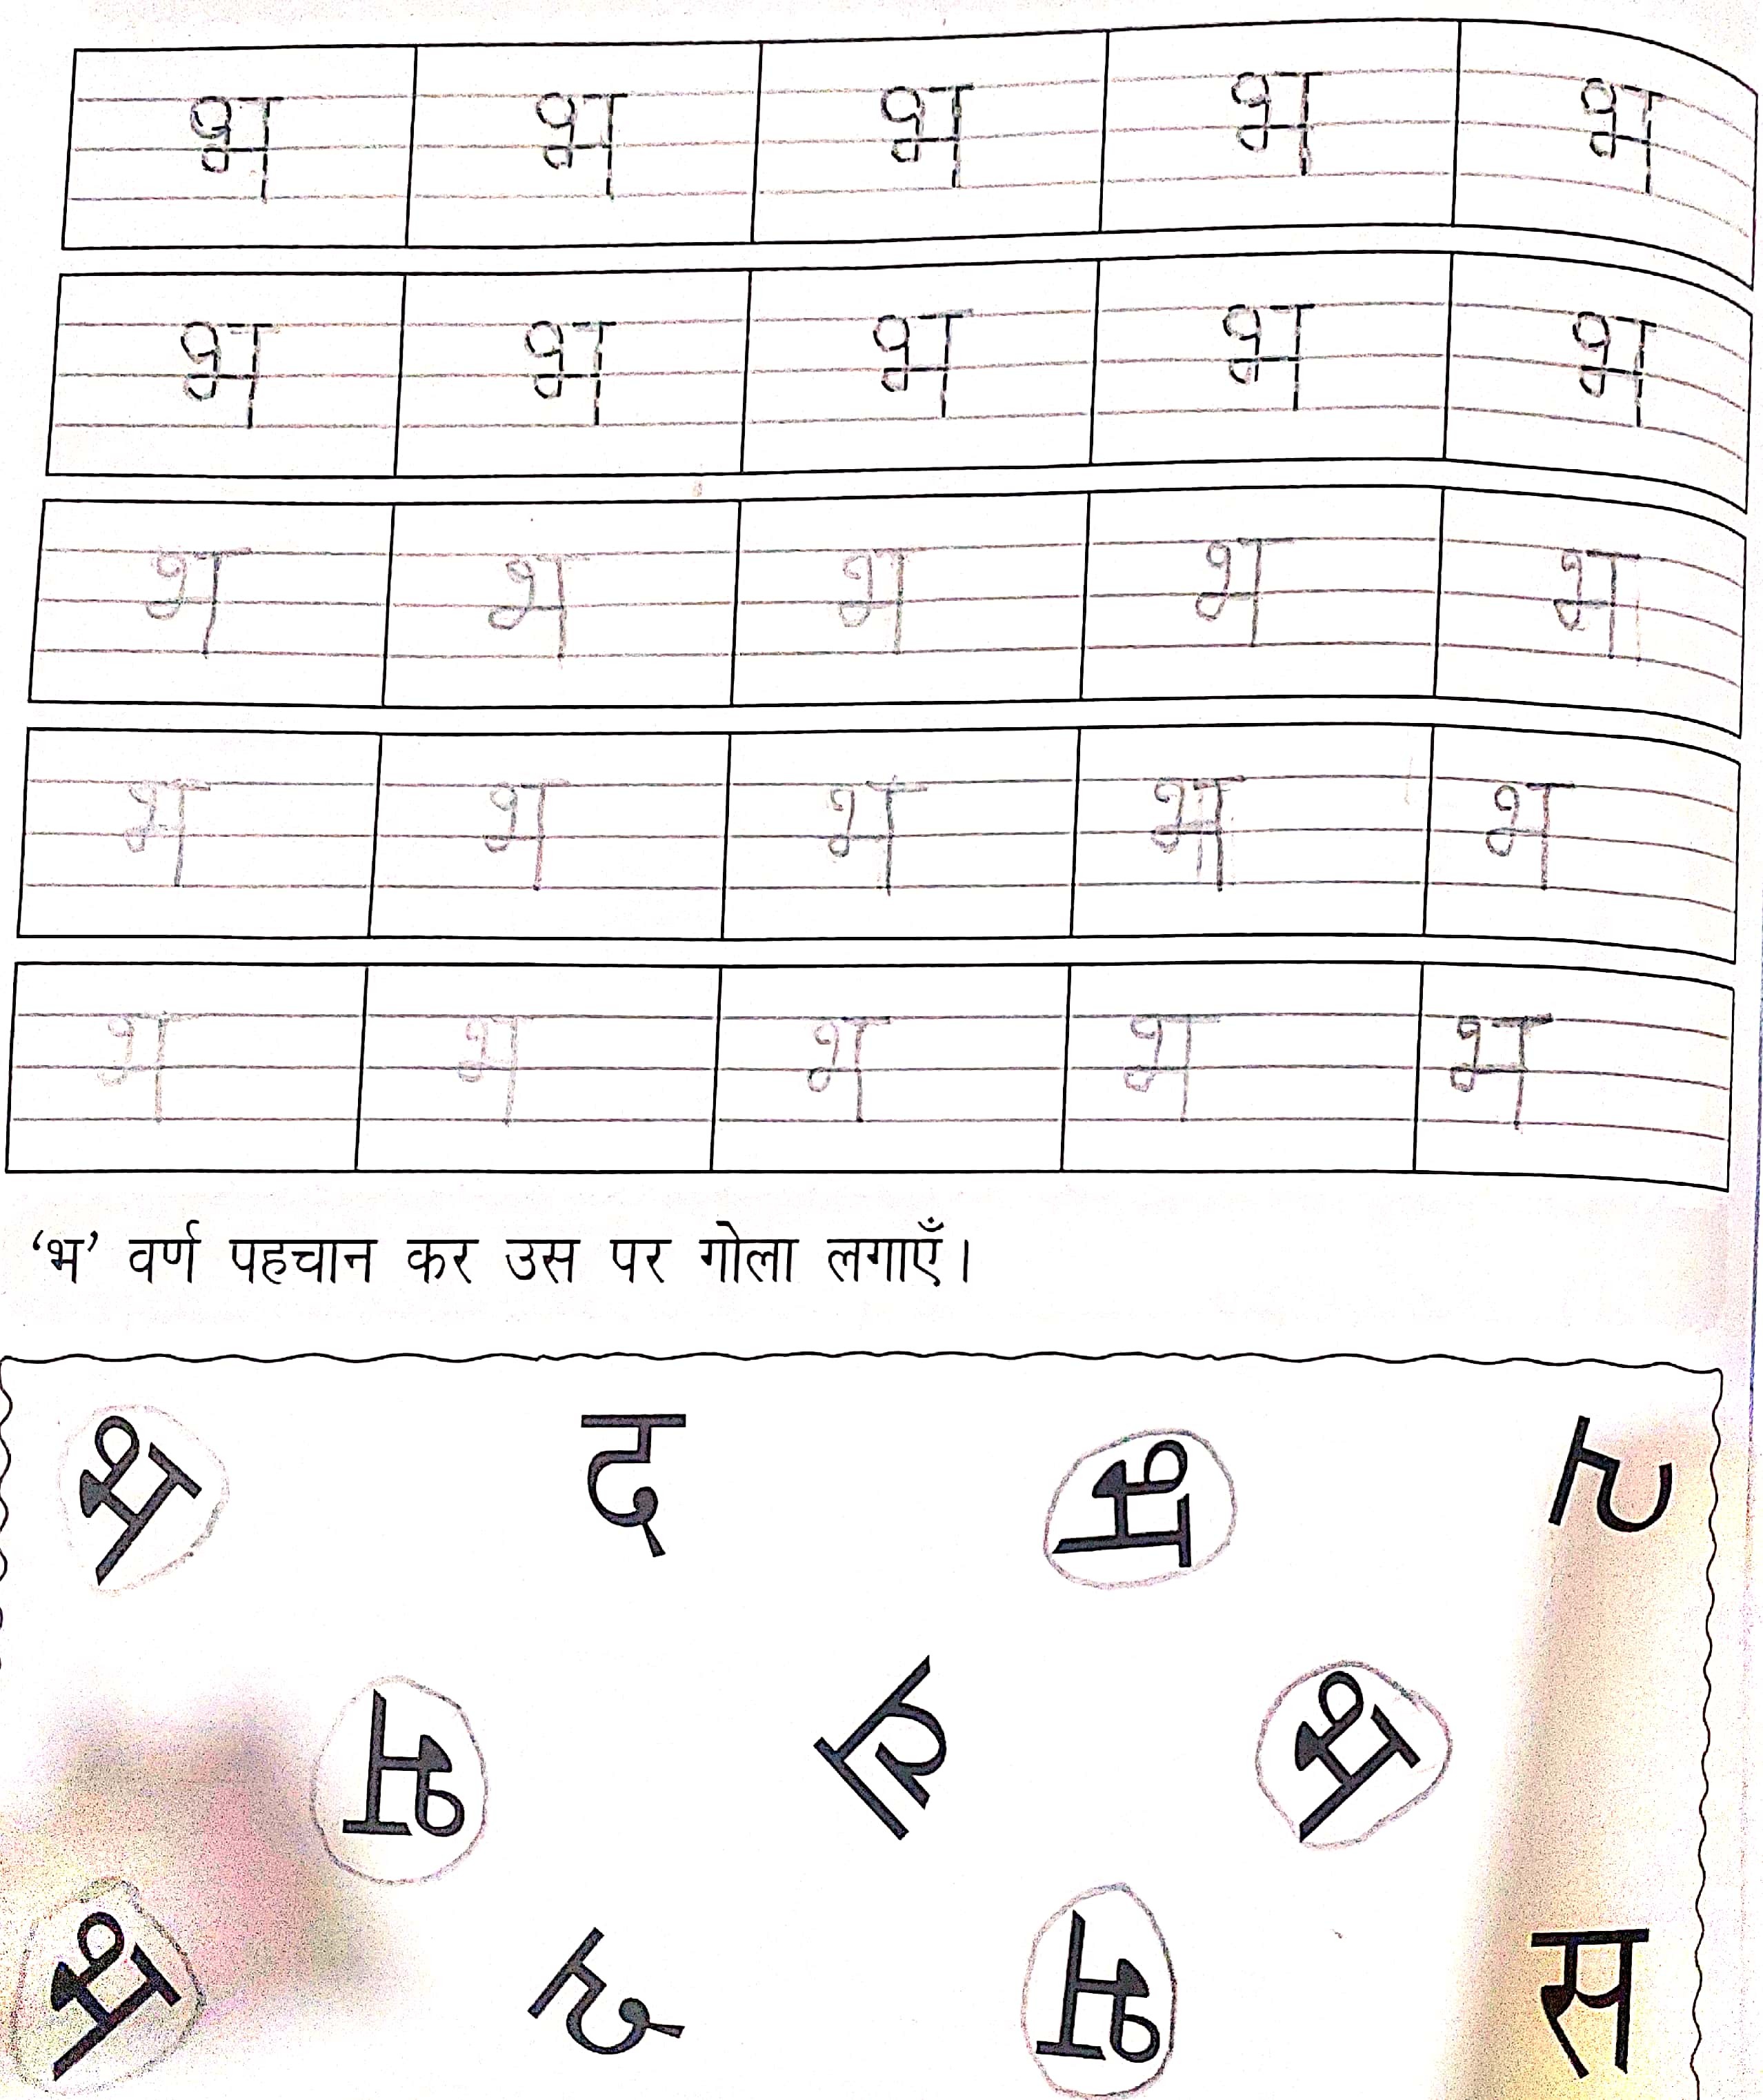 भ भ भ भ भ
भ भ भ भ भ
भ भ भ भ भ
भ भ भ भ भ
भ भ भ भ भ
‘भ’ वर्ण पहचान कर उस पर गोला लगाएँ।
भ द भ ट
भ रा भ
भ द भ स